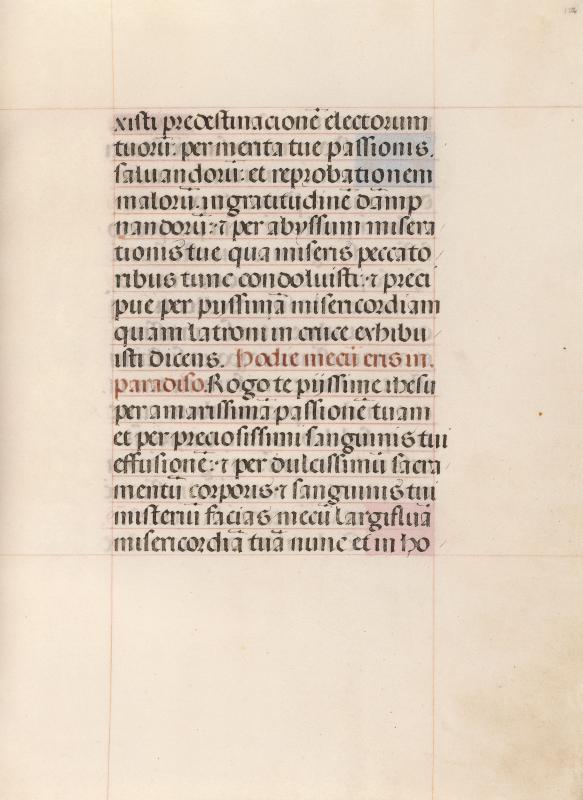 xisti predestinacionē electorum
tuorū: per merita tue passionis.
saluandorū: et reprobationem
malorū: ingratitudinē dāmp
nandorū: ⁊ per abyssum misera
tionis tue qua miseris peccato
ribus tunc condoluisti: ⁊ preci
pue per pijssimā misericordiam
quam latroni in cruce exhibu
isti dicens. Hodie mecū eris in
paradiso. Rogo te pijssime ihesu
per amarissimā passionē tuam
et per preciosissimi sanguinis tui
effusionē: ⁊ per dulcissimū sacra
mentū corporis ⁊ sanguinis tui
misteriū facias mecū largifluā
misericordiā tuā nunc et in ho